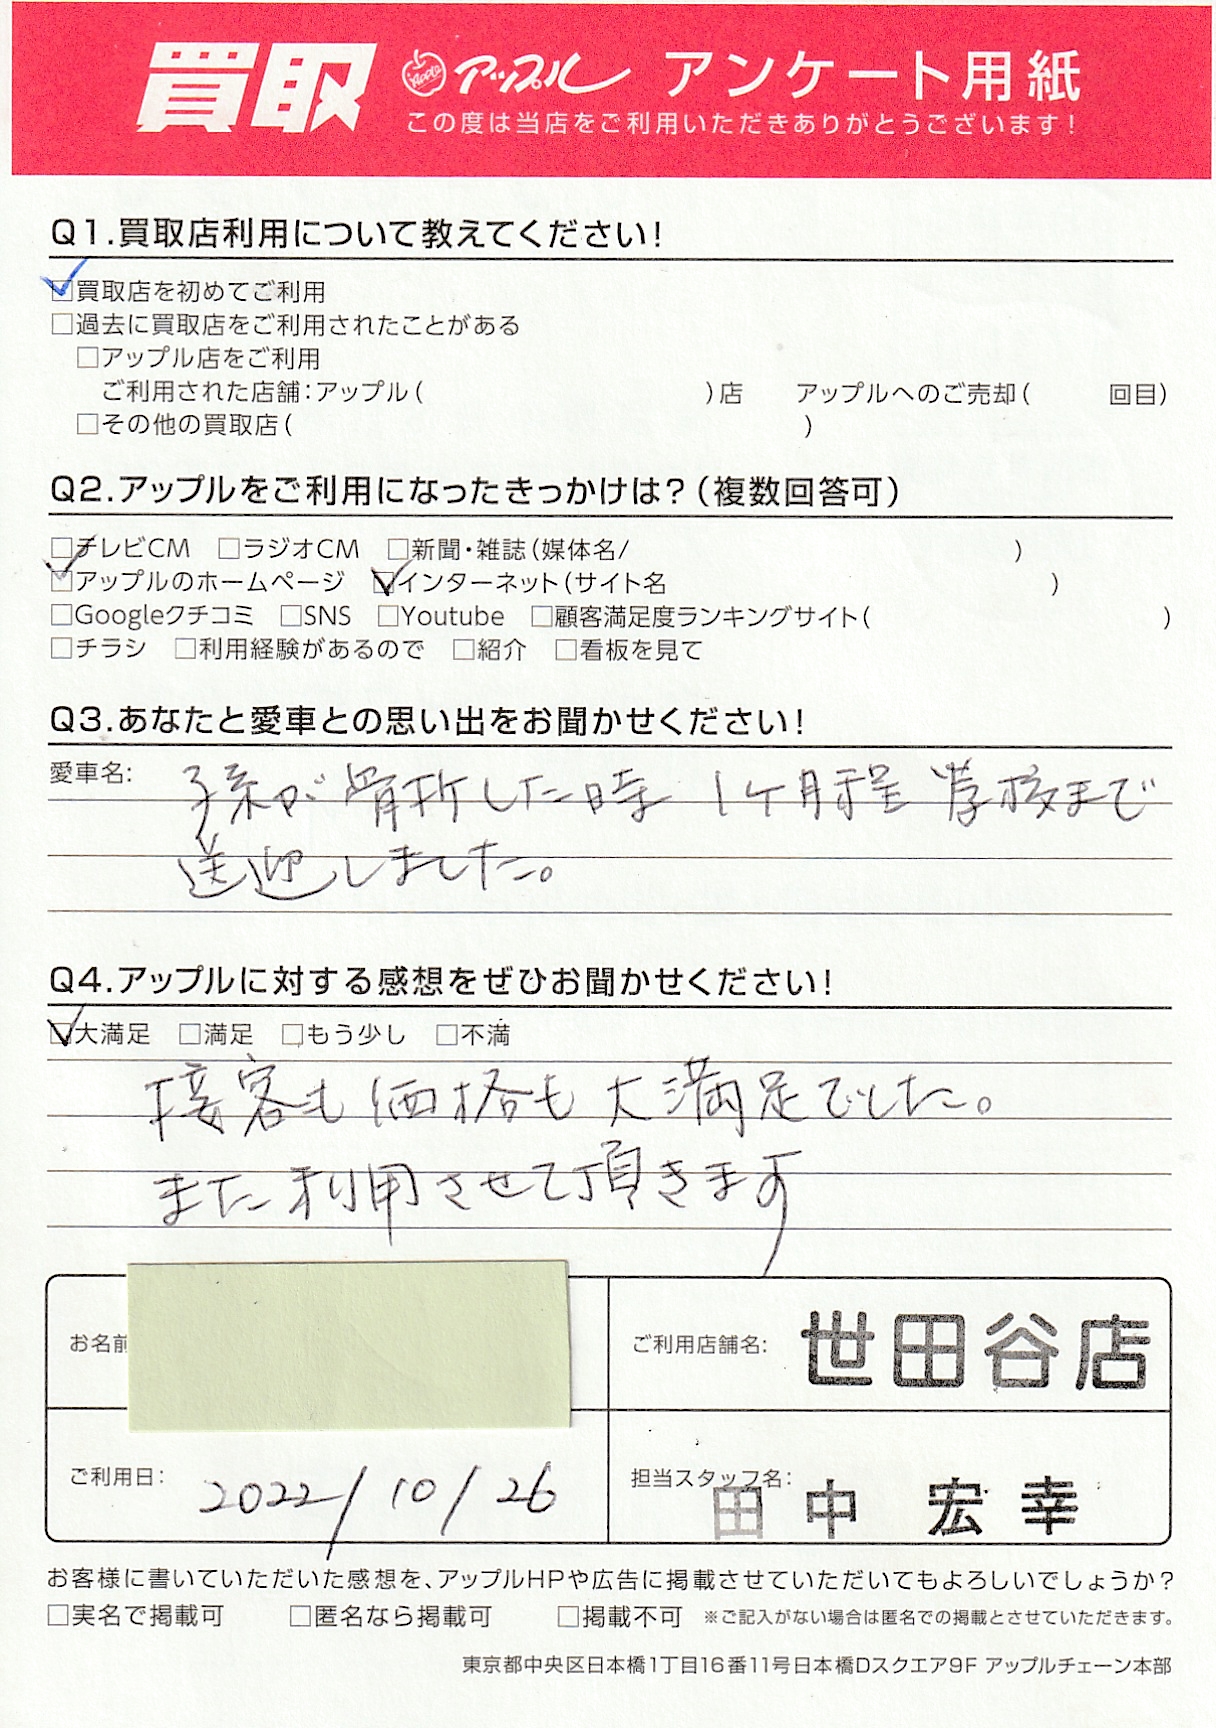 買取 Apple アップル アンケート用紙
この度は当店をご利用いただきありがとうございます！
Q1.買取店利用について教えてください！
☑買取店を初めてご利用
□過去に買取店をご利用されたことがある
□アップル店をご利用
ご利用された店舗：アップル（ ）店 アップルへのご売却（ 回目）
□その他の買取店（ ）
Q2.アップルをご利用になったきっかけは？（複数回答可）
□テレビCM □ラジオCM □新聞・雑誌（媒体名/ ）
☑アップルのホームページ ☑インターネット（サイト名 ）
□Googleクチコミ □SNS □Youtube □顧客満足度ランキングサイト（ ）
□チラシ □利用経験があるので □紹介 □看板を見て
Q3.あなたと愛車との思い出をお聞かせください！
愛車名： 子孫が骨折した時 1ヶ月程 学校まで
送迎しました。
Q4.アップルに対する感想をぜひお聞かせください！
☑大満足 □満足 □もう少し □不満
接客も価格も大満足でした。
また利用させて頂きます
お名前 ご利用店舗名： 世田谷店
ご利用日： 2022/10/26 担当スタッフ名： 田中 宏幸
お客様に書いていただいた感想を、アップルHPや広告に掲載させていただいてもよろしいでしょうか？
□実名で掲載可 □匿名なら掲載可 □掲載不可 ※ご記入がない場合は匿名での掲載とさせていただきます。
東京都中央区日本橋1丁目16番11号日本橋Dスクエア9F アップルチェーン本部